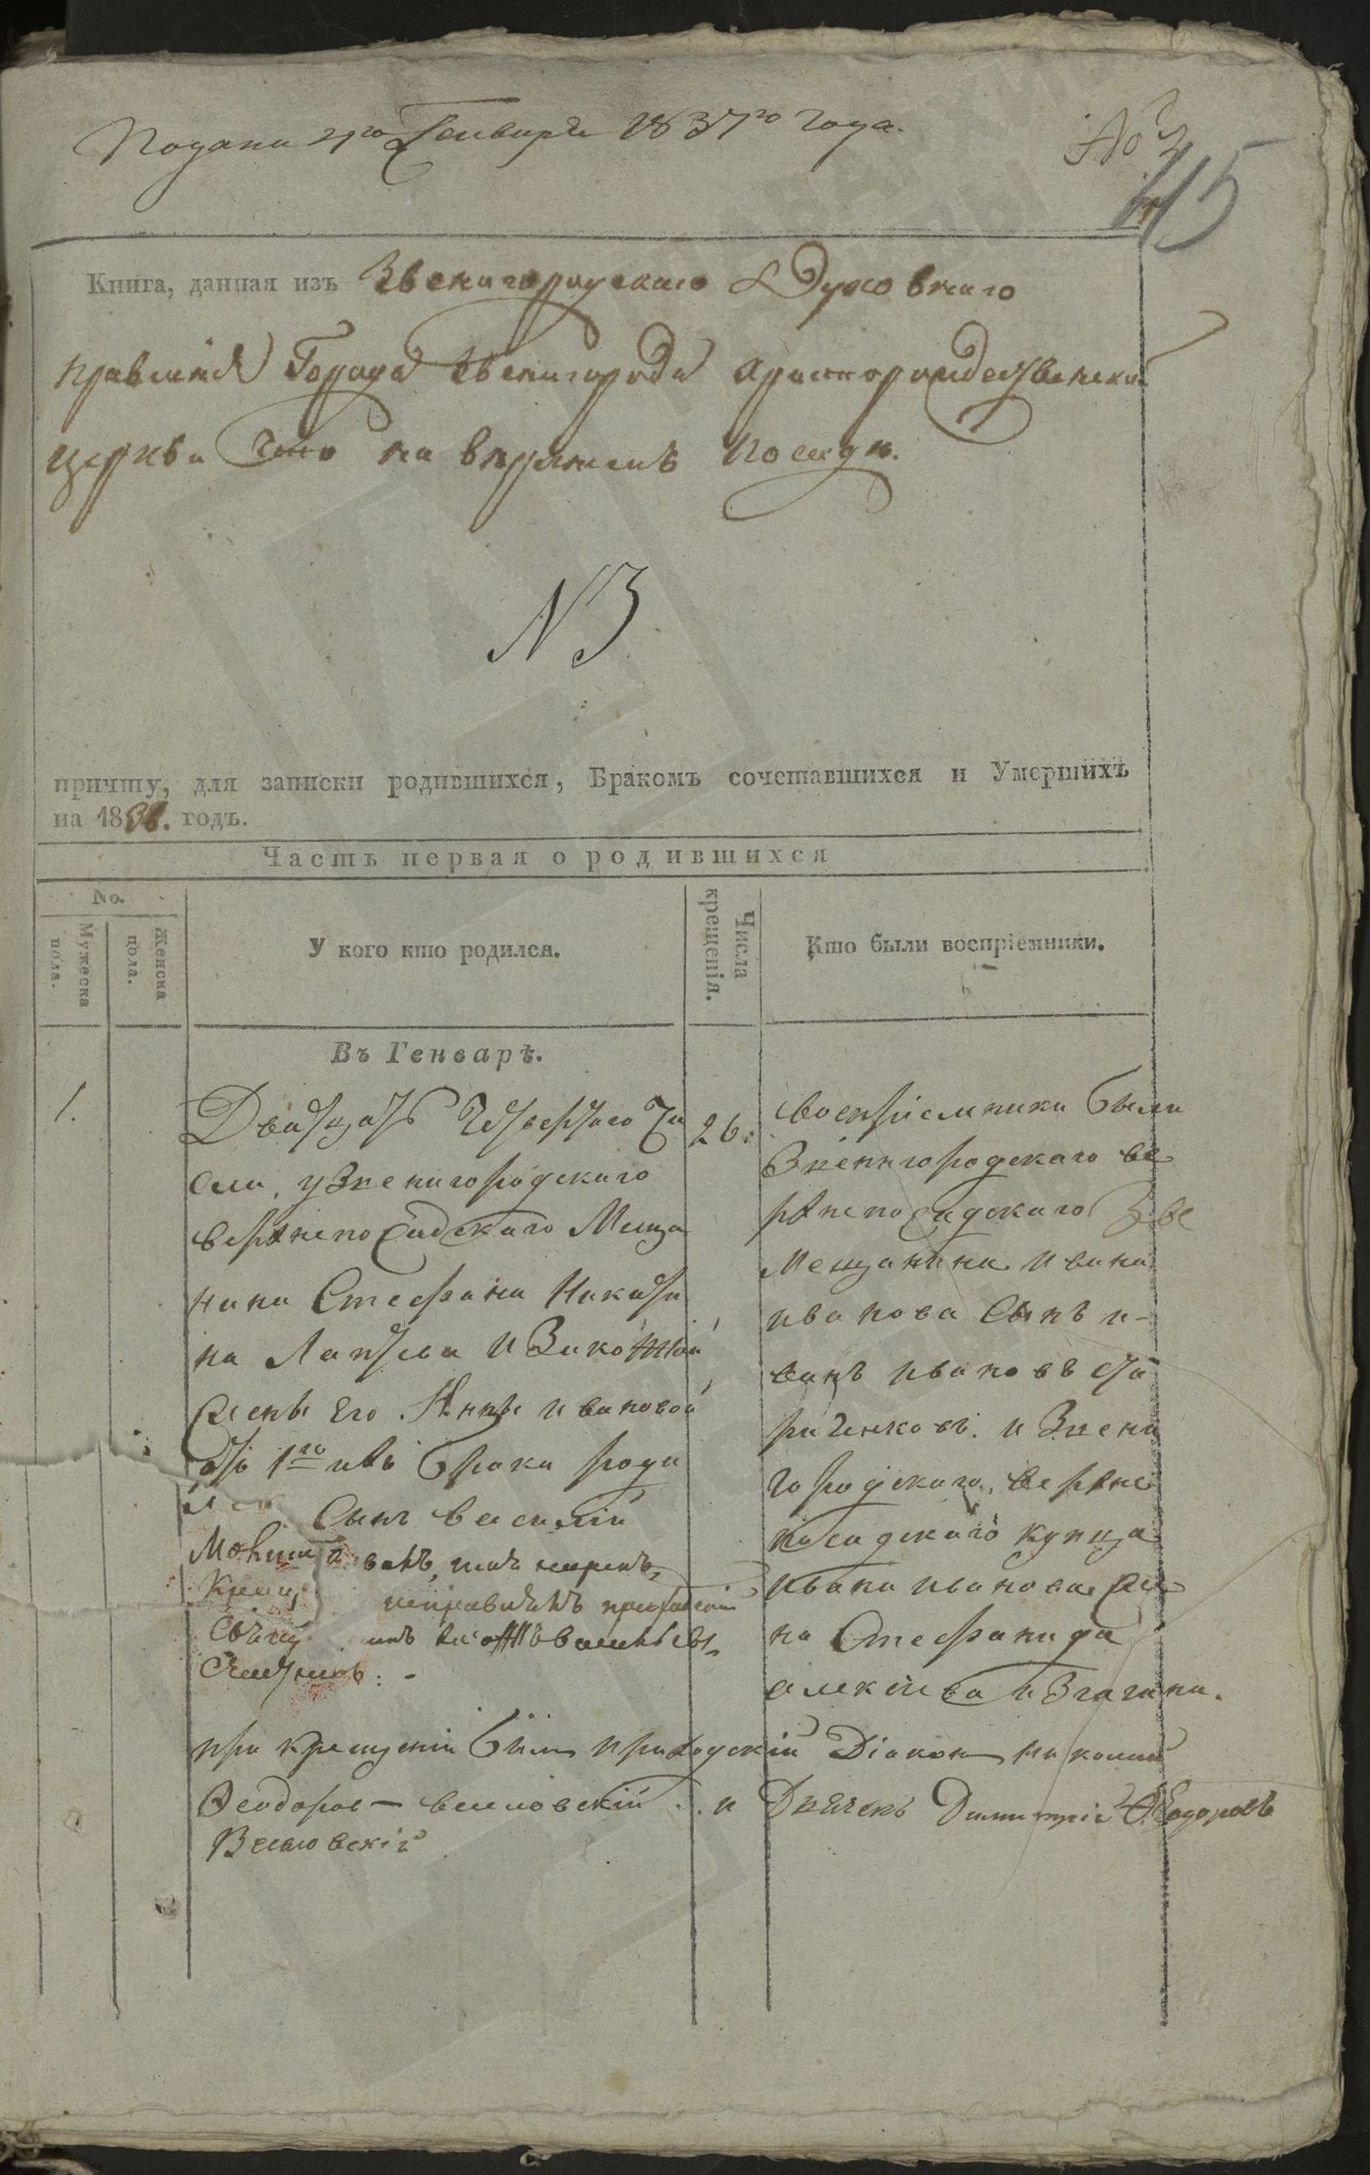 Подана 21го Генваря 1837го года.
№ 2
415
Книга, данная изъ Звенигородскаго Духовнаго
правленія Города Звенигорода христорождественской
церкви что на верхнемъ посадѣ.
N 3
причту, для записки родившихся, Бракомъ сочетавшихся и Умершихъ
на 1836. годъ.
Часть первая о родившихся
No.
Мужеска пола.
Женска пола.
У кого кто родился.
Числа крещенія.
Кто были воспріемники.
Въ Генварѣ.
1.
Двадцать Четвертаго Чи
сла, у Звенигородскаго
верхнепосадскаго Меща
нина Стефана Никити
на Лаптева и Законной
жены Его Анны ивановой
отъ 1го ихъ брака роди
лся Сынъ василій
Молит ванъ, имя нареч
Крещ исправилъ приходскій
Свящ инъ
26.
воспріемники были
Звенигородскаго ве
рхнепосадскаго Зве
Мещанина ивана
иванова Сынъ и-
ванъ ивановъ
и Звени
городскаго, верхне
посадскаго купца
ивана иванова же
на Стефанида
алексіева
при крещеніи былъ приходскій Діаконъ николай
Ѳеодоровъ - веселовскій и Дьячекъ Димитрій Ѳеодоровъ
Веселовскій